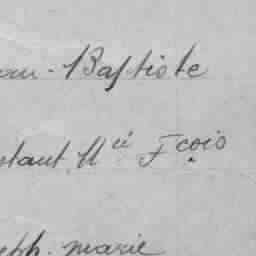 ean-Baptiste
stant Mie Fçois
seph-marie